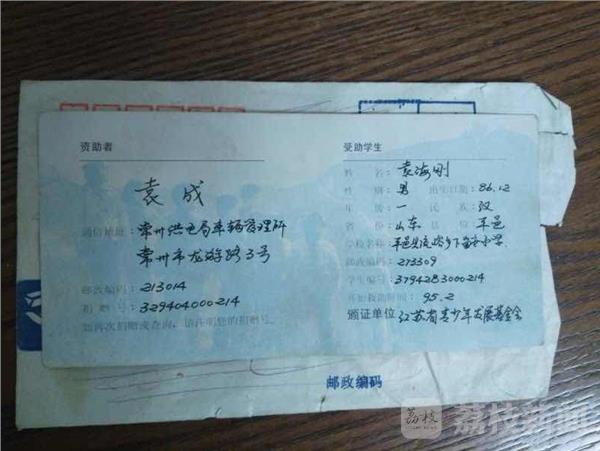 资助者
袁成
通信地址：常州供电局车辆管理所
常州市龙游路3号
邮政编码：213014
捐赠号：329404000214
如再次捐赠或查询，请注明您的捐赠号。
受助学生
姓名：袁海刚
性别：男 出生日期：86.12
年级：一 民族：汉
省份：山东 县份：平邑
学校名称：平邑县流峪乡下 小学
邮政编码：273309
学生编号：3794283000214
开始救助时间：95.2
颁证单位 江苏省青少年发展基金会
邮政编码
荔枝
荔枝新闻